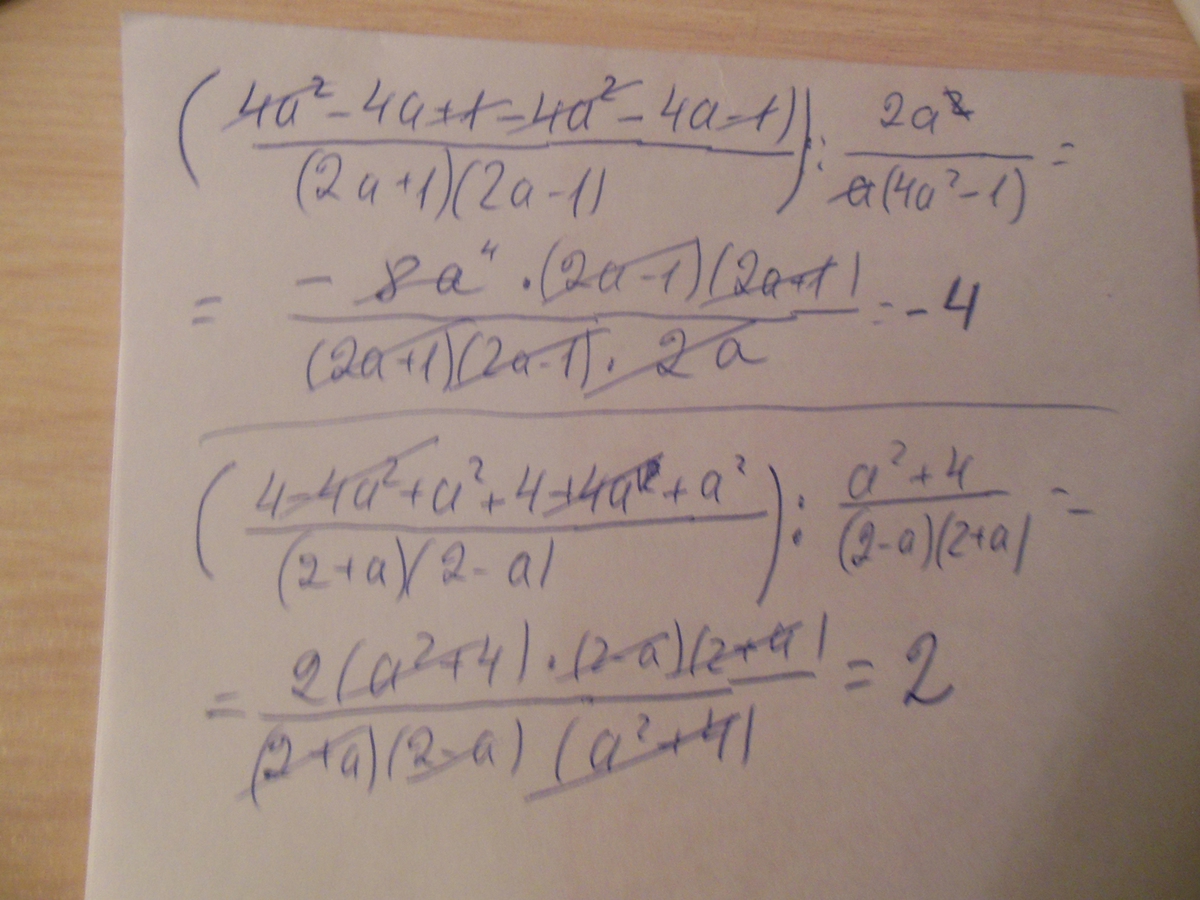 (4a² - 4a + 1 - 4a² - 4a - 1) : 2a² =
(2a+1)(2a-1) a(4a²-1)
= - 8a⁴ · (2a-1)(2a+1) = -4
(2a+1)(2a-1) · 2a
(4 - 4a² + a² + 4 + 4a² + a²) : a² + 4 =
(2+a)(2-a) (2-a)(2+a)
= 2(a²+4) · (2-a)(2+a) = 2
(2+a)(2-a) (a²+4)